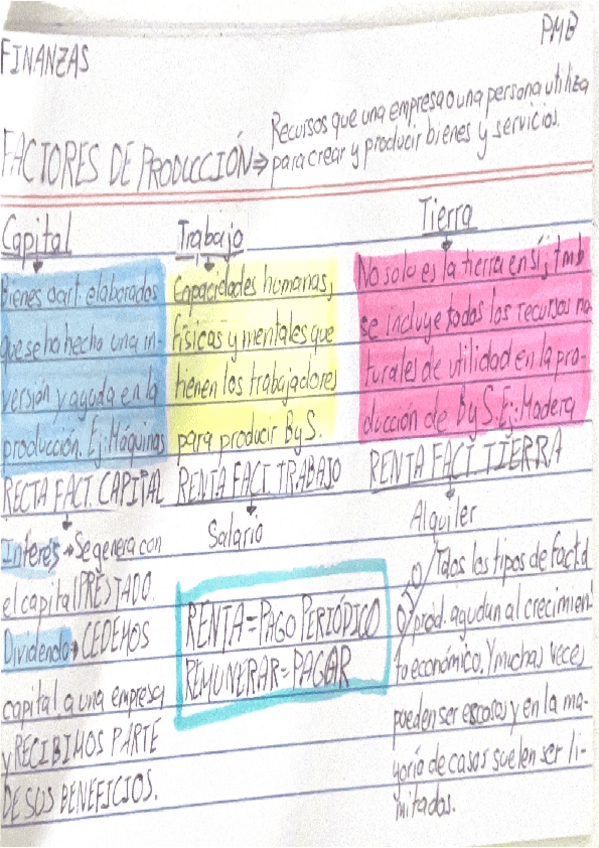 PMB
FINANZAS
FACTORES DE PRODUCCIÓN ⇒
Recursos que una empresa o una persona utiliza
para crear y producir bienes y servicios.
Capital
Bienes o art. elaborados
que se ha hecho una in-
versión y ayuda en la
producción. Ej: Máquinas
RECTA FACT. CAPITAL
Interés → Se genera con
el capital PRESTADO.
Dividendo → CEDEMOS
capital a una empresa
y RECIBIMOS PARTE
DE SUS BENEFICIOS.
Trabajo
Capacidades humanas,
físicas y mentales que
tienen los trabajadores
para producir B y S.
RENTA FACT. TRABAJO
Salario
RENTA = PAGO PERIÓDICO
REMUNERAR = PAGAR
Tierra
No solo es la tierra en sí, tmb
se incluye todos los recursos na-
turales de utilidad en la pro-
ducción de B y S. Ej: Madera
RENTA FACT. TIERRA
Alquiler
Todos los tipos de fact. d
prod. ayudan al crecimien
to económico. Y muchas veces
pueden ser escasos y en la ma-
yoría de casos suelen ser li-
mitados.